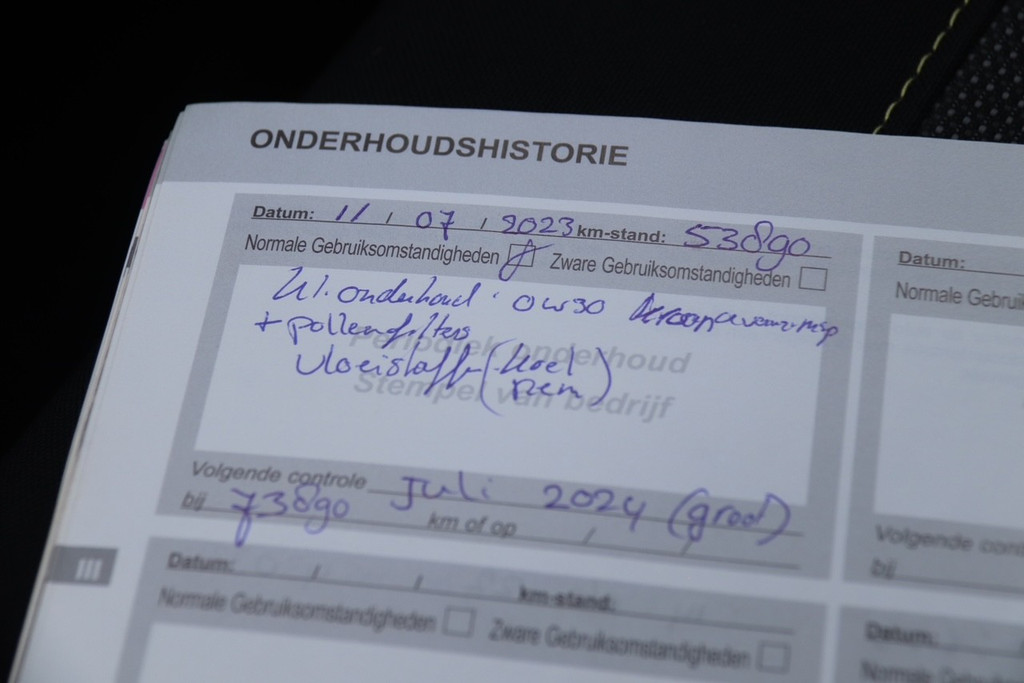 ONDERHOUDSHISTORIE
Datum: 11 / 07 / 2023 km-stand: 53890
Normale Gebruiksomstandigheden Zware Gebruiksomstandigheden
Kl. onderhoud 0w30
+ pollenfilters
Periodiek onderhoud
Vloeistoffen (koel
rem)
Stempel van bedrijf
Volgende controle Juli 2024 (groot)
bij 73890 km of op / /
Datum: / / km-stand:
Normale Gebruiksomstandigheden Zware Gebruiksomstandigheden
III
Datum:
Normale Gebrui
Volgende cont
bij
Datum:
Normale Gebrui